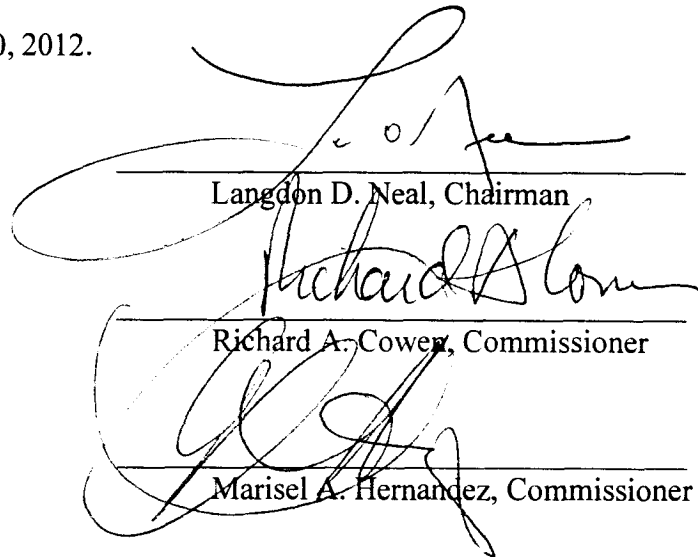 0, 2012.
Langdon D. Neal, Chairman
Richard A. Cowen
Richard A. Cowen, Commissioner
Marisel A. Hernandez, Commissioner